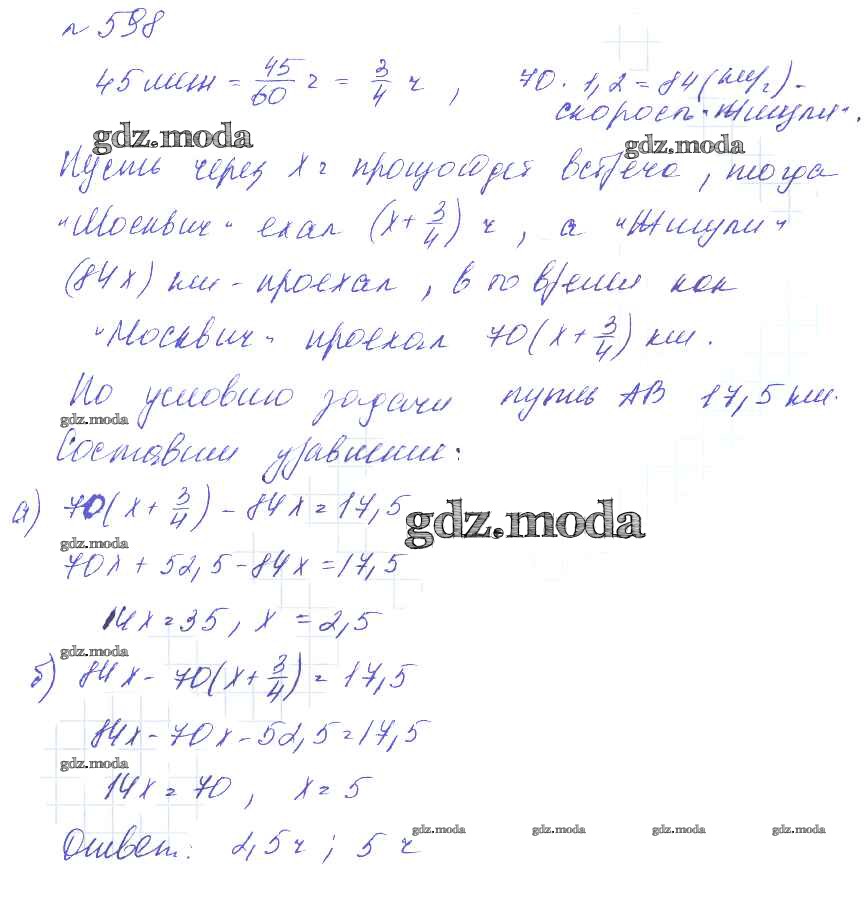 № 598
45 мин = 45/60 ч = 3/4 ч, 70 · 1,2 = 84 (км/ч) -
скорость "Жигули".
gdz.moda gdz.moda
Пусть через x ч произойдет встреча, тогда
"Москвич" ехал (x + 3/4) ч, а "Жигули"
(84x) км - проехал, в то время как
"Москвич" проехал 70(x + 3/4) км.
По условию задачи путь AB 17,5 км.
gdz.moda
Составим уравнение:
а) 70(x + 3/4) - 84x = 17,5
gdz.moda
gdz.moda
70x + 52,5 - 84x = 17,5
14x = 35, x = 2,5
gdz.moda
б) 84x - 70(x + 3/4) = 17,5
84x - 70x - 52,5 = 17,5
gdz.moda
14x = 70, x = 5
gdz.moda gdz.moda gdz.moda gdz.moda
Ответ: 2,5 ч; 5 ч